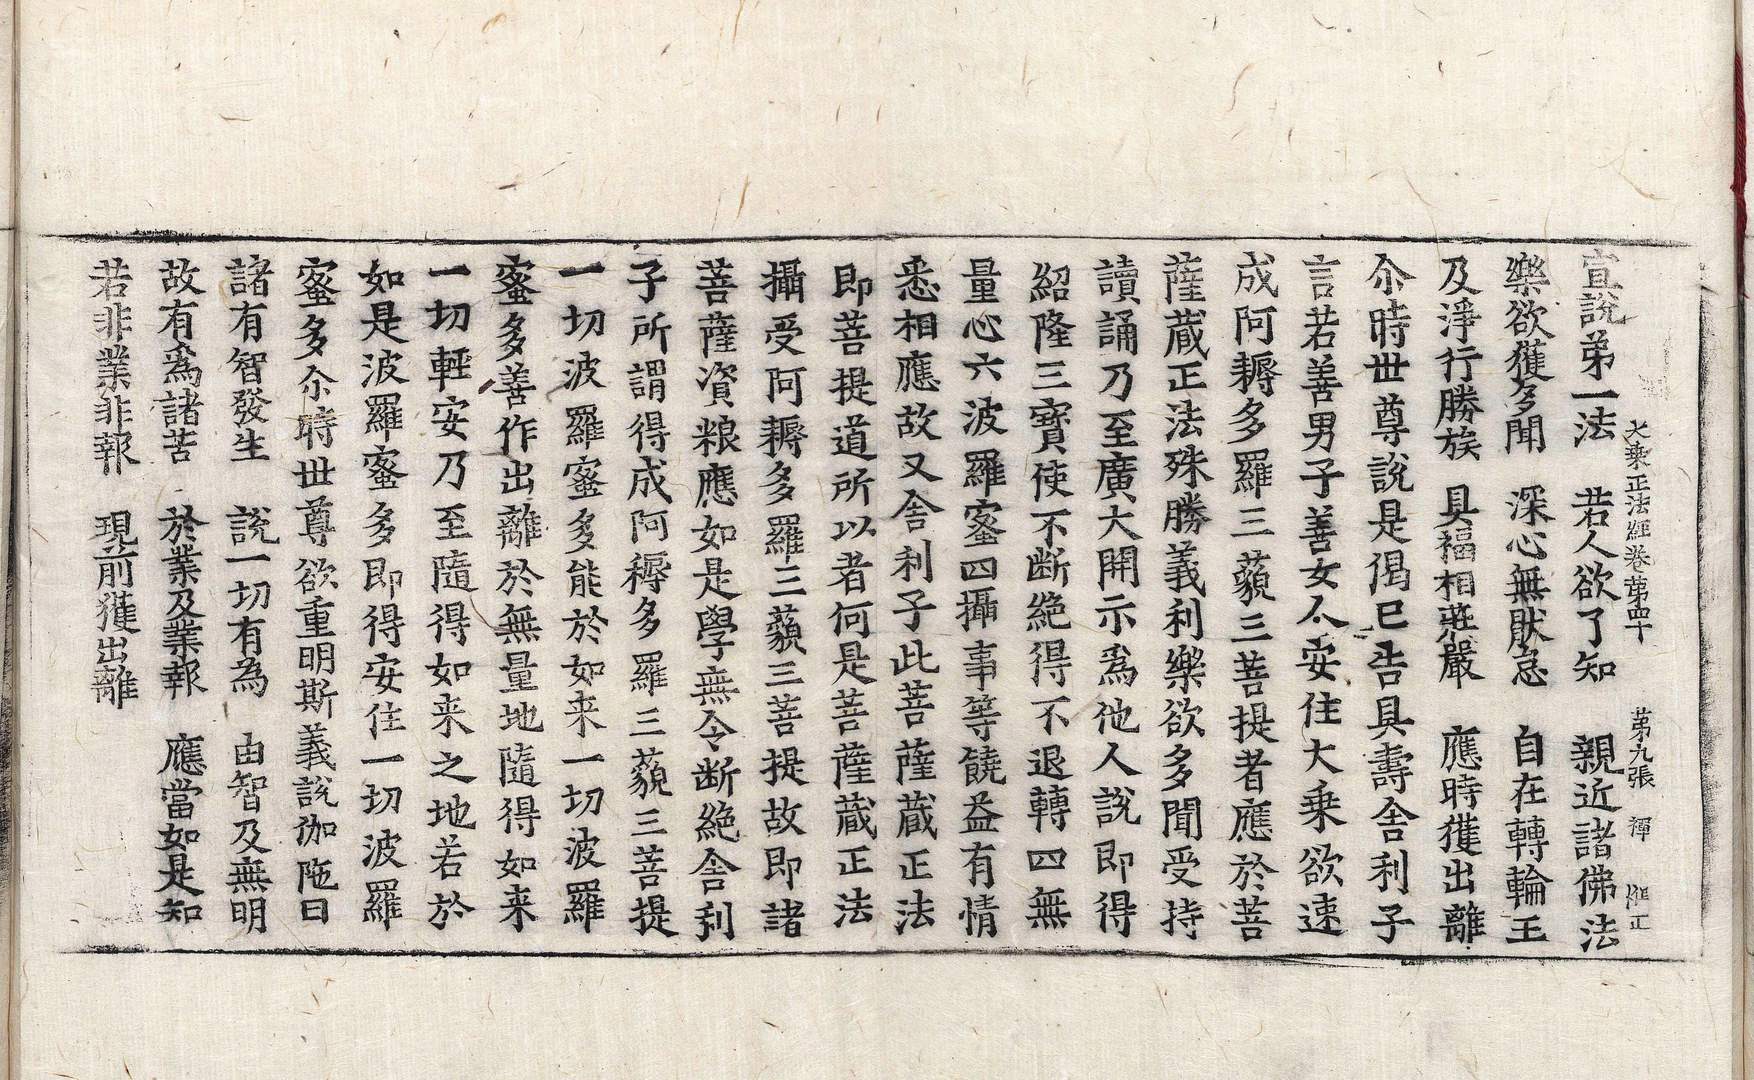 大乘正法經卷第四十　第九張　禪　惟正
宣說第一法　若人欲了知　親近諸佛法
樂欲獲多聞　深心無猒怠　自在轉輪王
及淨行勝族　具福相莊嚴　應時獲出離
尒時世尊說是偈已告具壽舍利子
言若善男子善女人安住大乘欲速
成阿耨多羅三藐三菩提者應於菩
薩蔵正法殊勝義利樂欲多聞受持
讀誦乃至廣大開示爲他人說即得
紹隆三寶使不断絶得不退轉四無
量心六波羅蜜四攝事等饒益有情
悉相應故又舍利子此菩薩蔵正法
即菩提道所以者何是菩薩蔵正法
攝受阿耨多羅三藐三菩提故即諸
菩薩資粮應如是學無令断絶舍利
子所謂得成阿耨多羅三藐三菩提
一切波羅蜜多能於如来一切波羅
蜜多善作出離於無量地隨得如来
一切輕安乃至隨得如来之地若於
如是波羅蜜多即得安住一切波羅
蜜多尒時世尊欲重明斯義說伽陁曰
諸有智發生　說一切有為　由智及無明
故有爲諸苦　於業及業報　應當如是知
若非業非報　現前獲出離